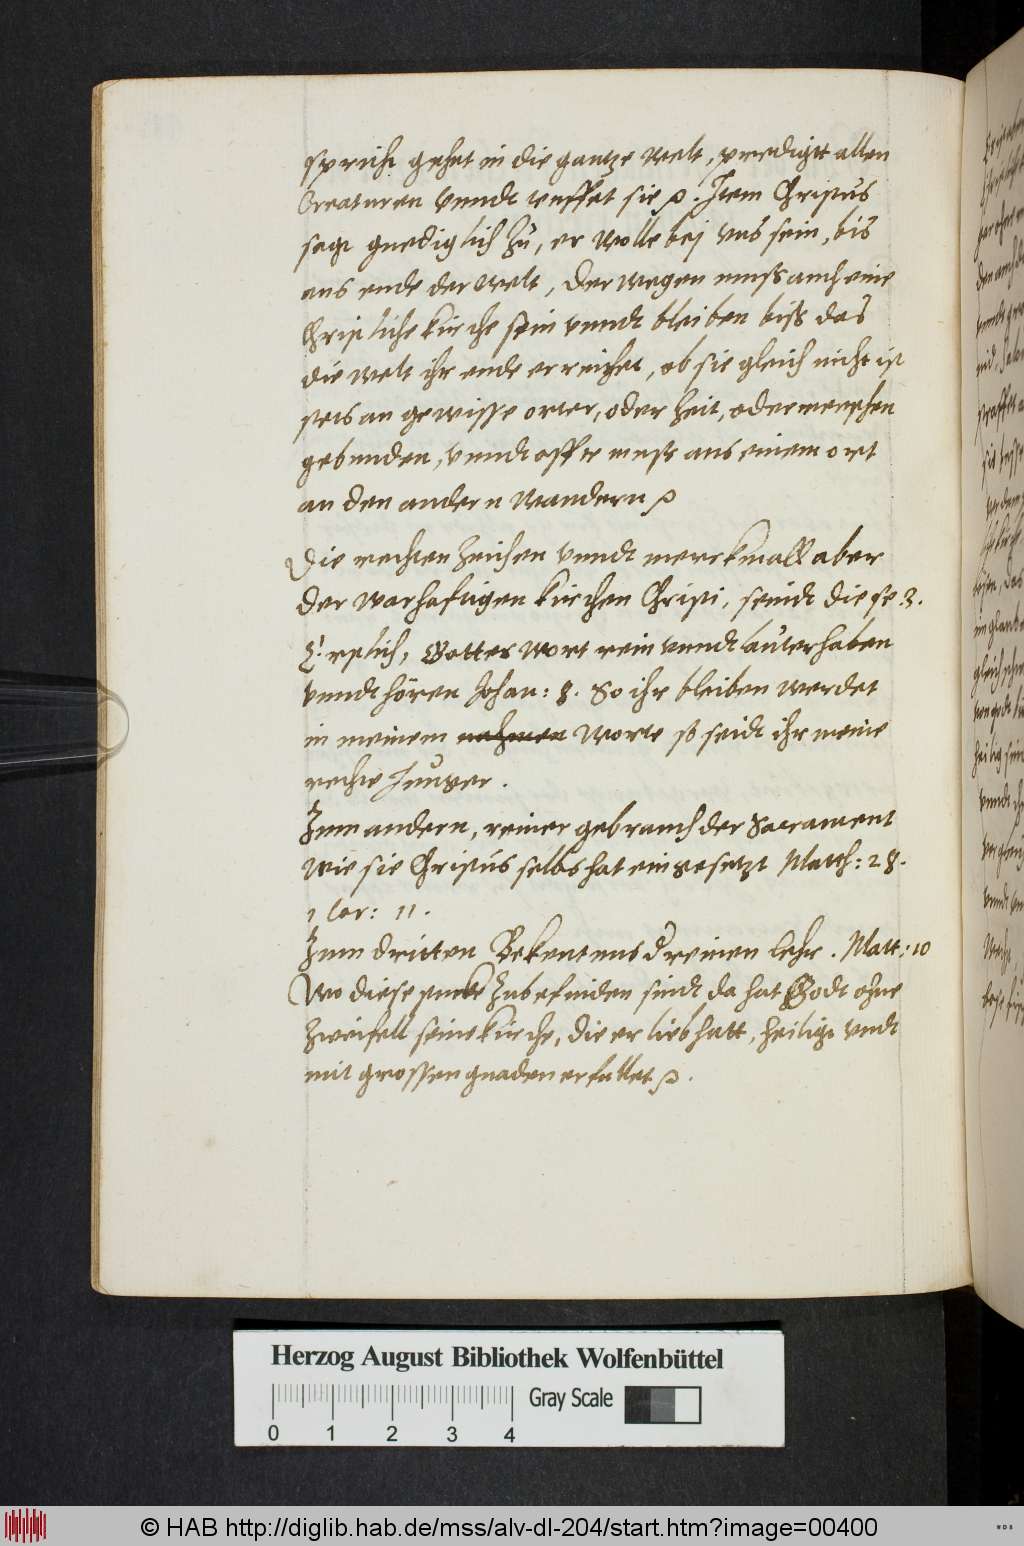 spricht gehet in die gantze Welt, predigtt allen
Creaturen vnndt teuffet sie ꝛc. Item Christus
sagt gnediglich zu, er wolle bej vns sein, bis
ans ende der welt, Derwegen muss auch eine
Christliche kirche sein vnndt bleiben biss das
die welt ihr ende erreichet, ob sie gleich nicht ist
stets an gewisse orter, oder Zeit, oder menschen
gebunden, vnndt offte muss aus einem ort
an den andern wandern ꝛc
Die rechten Zeichen vnndt merckmall aber
der warhafftigen kirchen Christi, seindt diese .3.
Erstlich, Gottes Wort rein vnndt lauter haben
vnndt hören Johan: 8. So ihr bleiben werdet
in meinem nahmen Worte so seidt ihr meine
rechte Junger.
Zum andern, reiner gebrauch der Sacrament
wie sie Christus selbs hat eingesetzt Matth: 28.
1 Cor: 11.
Zum dritten Bekentnus d reinen lehr. Matt: 10
Wo diese puncte zubefinden sindt da hat Godt ohne
zweifell seine kirche, die er lieb hatt, heiligt vndt
mit grossen gnaden erfullet ꝛc.
Herzog August Bibliothek Wolfenbüttel
Gray Scale
0 1 2 3 4
© HAB http://diglib.hab.de/mss/alv-dl-204/start.htm?image=00400